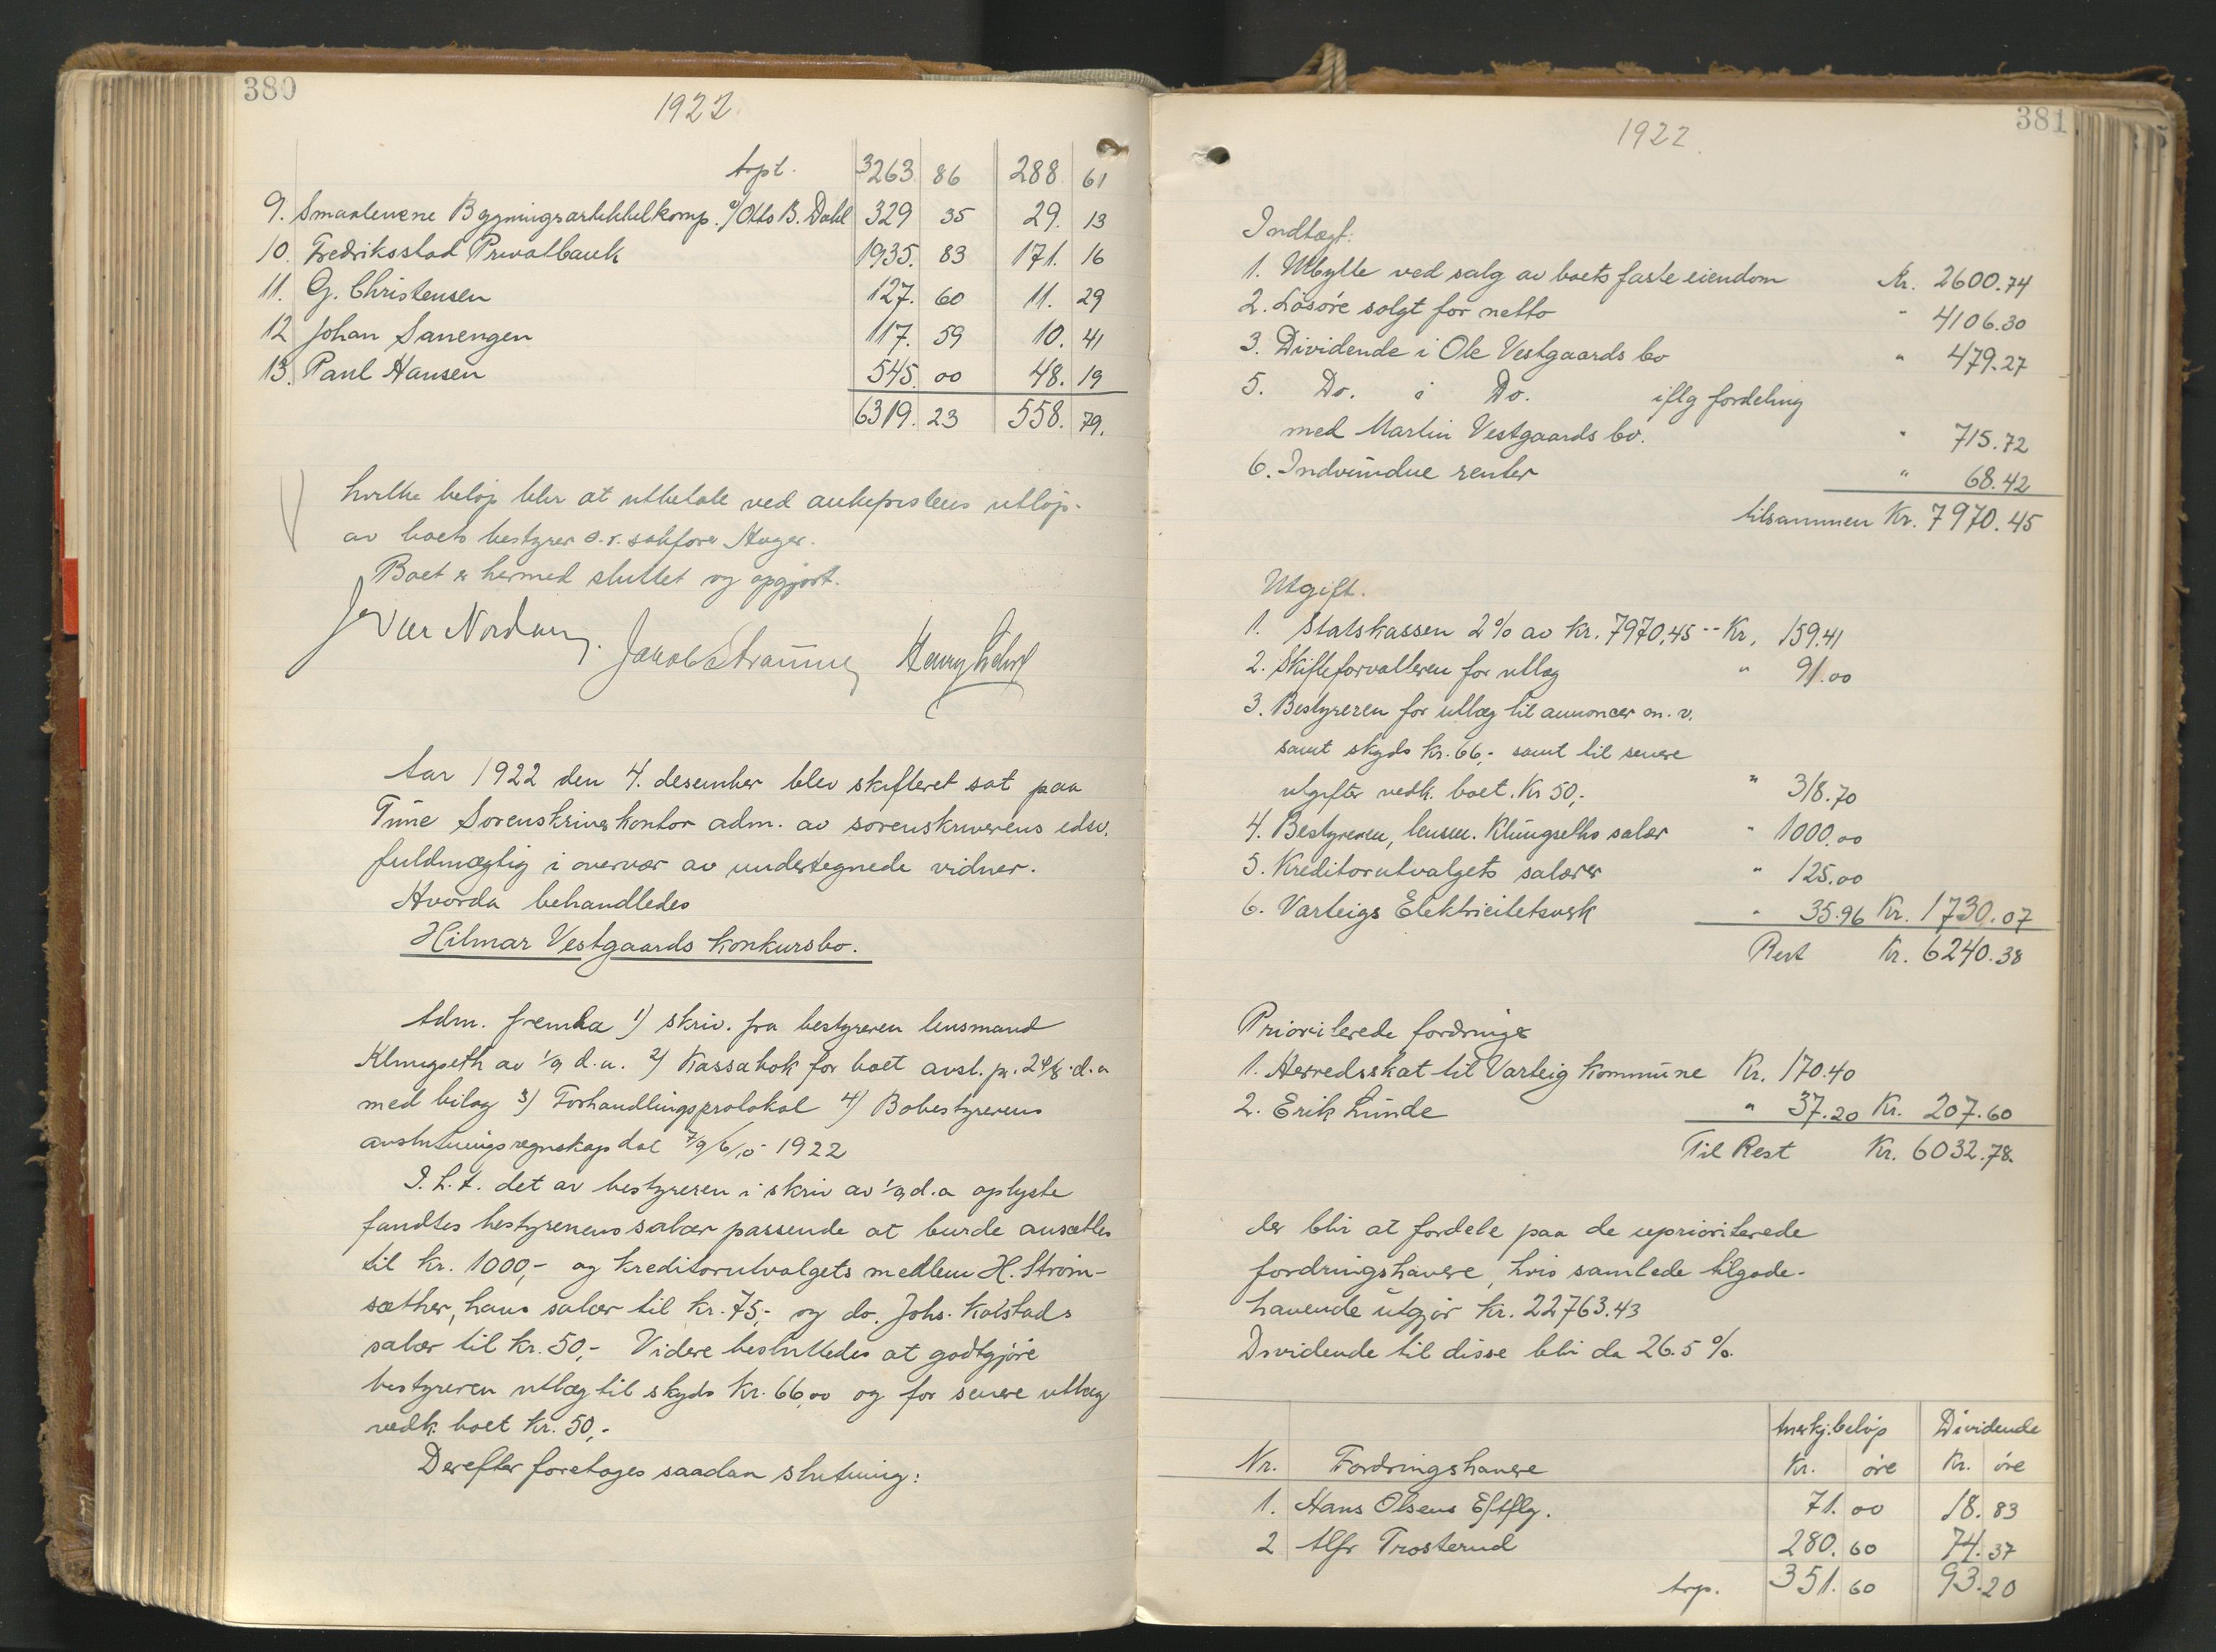 380
1922
trpt. 3263 86 288 61
9. Smaalenene Bygningsartikkelkomp. v/Otto B. Dahl 329 35 29. 13
10. Fredriksstad Privatbank 1935. 83 171. 16
11. G. Christensen 127. 60 11. 29
12 Johan Sanengen 117. 59 10. 41
13. Paul Hansen 545. 00 48. 19
6319. 23 558. 79.
hvilke beløp blir at utbetale ved ankefristens utløp.
av boets bestyrer o.r. sakfører Auger.
Boet er hermed sluttet og opgjort.
Aar 1922 den 4. desember blev skifteret sat paa
Tune Sorenskriverkontor adm. av sorenskriverens edsv.
fuldmægtig i overvær av undertegnede vidner.
Hvorda behandledes
Hilmar Vestgaards konkursbo.
Adm. fremla 1) skriv. fra bestyreren lensmand
Klingseth av 1/9 d.a. 2) Kassabok for boet avsl. pr. 24/8 d.a
med bilag 3) Forhandlingsprotokol 4) Bobestyrerens
avslutningsregnskap dat 7/9 6/10 - 1922
I.h.t. det av bestyreren i skriv av 1/9 d.a oplyste
fandtes bestyrerens salær passende at burde ansættes
til kr. 1000,- og kreditorutvalgets medlem H. Strøm-
sæther, hans salær til kr. 75,- og do. Johs. Kolstads
salær til kr. 50,- Videre besluttedes at godtgjøre
bestyreren utlæg til skyds kr. 66,00 og for senere utlæg
vedk. boet kr. 50,-
Derefter foretoges saadan slutning:
381
1922.
Indtægt:
1. Utbytte ved salg av boets faste eiendom Kr. 2600.74
2. Løsøre solgt for netto " 4106.30
3. Dividende i Ole Vestgaards bo " 479.27
5. Do. i Do. iflg fordeling
med Martin Vestgaards bo. " 715.72
6. Indvundne renter " 68.42
tilsammen Kr. 7970.45
Utgift.
1. Statskassen 2% av kr. 7970,45 -- Kr. 159.41
2. Skifteforvalteren for utlæg " 91.00
3. Bestyreren for utlæg til annoncer m.v.
samt skyds kr. 66,- samt til senere
utgifter vedk. boet. Kr 50,- " 318.70
4. Bestyreren, lensm. Klingseths salær " 1000.00
5. Kreditorutvalgets salærer " 125.00
6. Varteigs Elektricitetsverk " 35.96 Kr. 1730.07
Rest Kr. 6240.38
Prioriterede fordringer
1. Herredsskat til Varteig kommune Kr. 170.40
2. Erik Lunde " 37.20 Kr. 207.60
Til Rest Kr. 6032.78.
der blir at fordele paa de uprioriterede
fordringshavere, hvis samlede tilgode-
havende utgjør kr. 22763.43
Dividende til disse blir da 26.5 %.
Anerkj. beløp Dividende
Nr. Fordringshavere Kr. øre Kr. øre
1. Hans Olsens Eftflg. 71. 00 18. 83
2 Alfr Trosterud 280. 60 74. 37
trp. 351. 60 93. 20